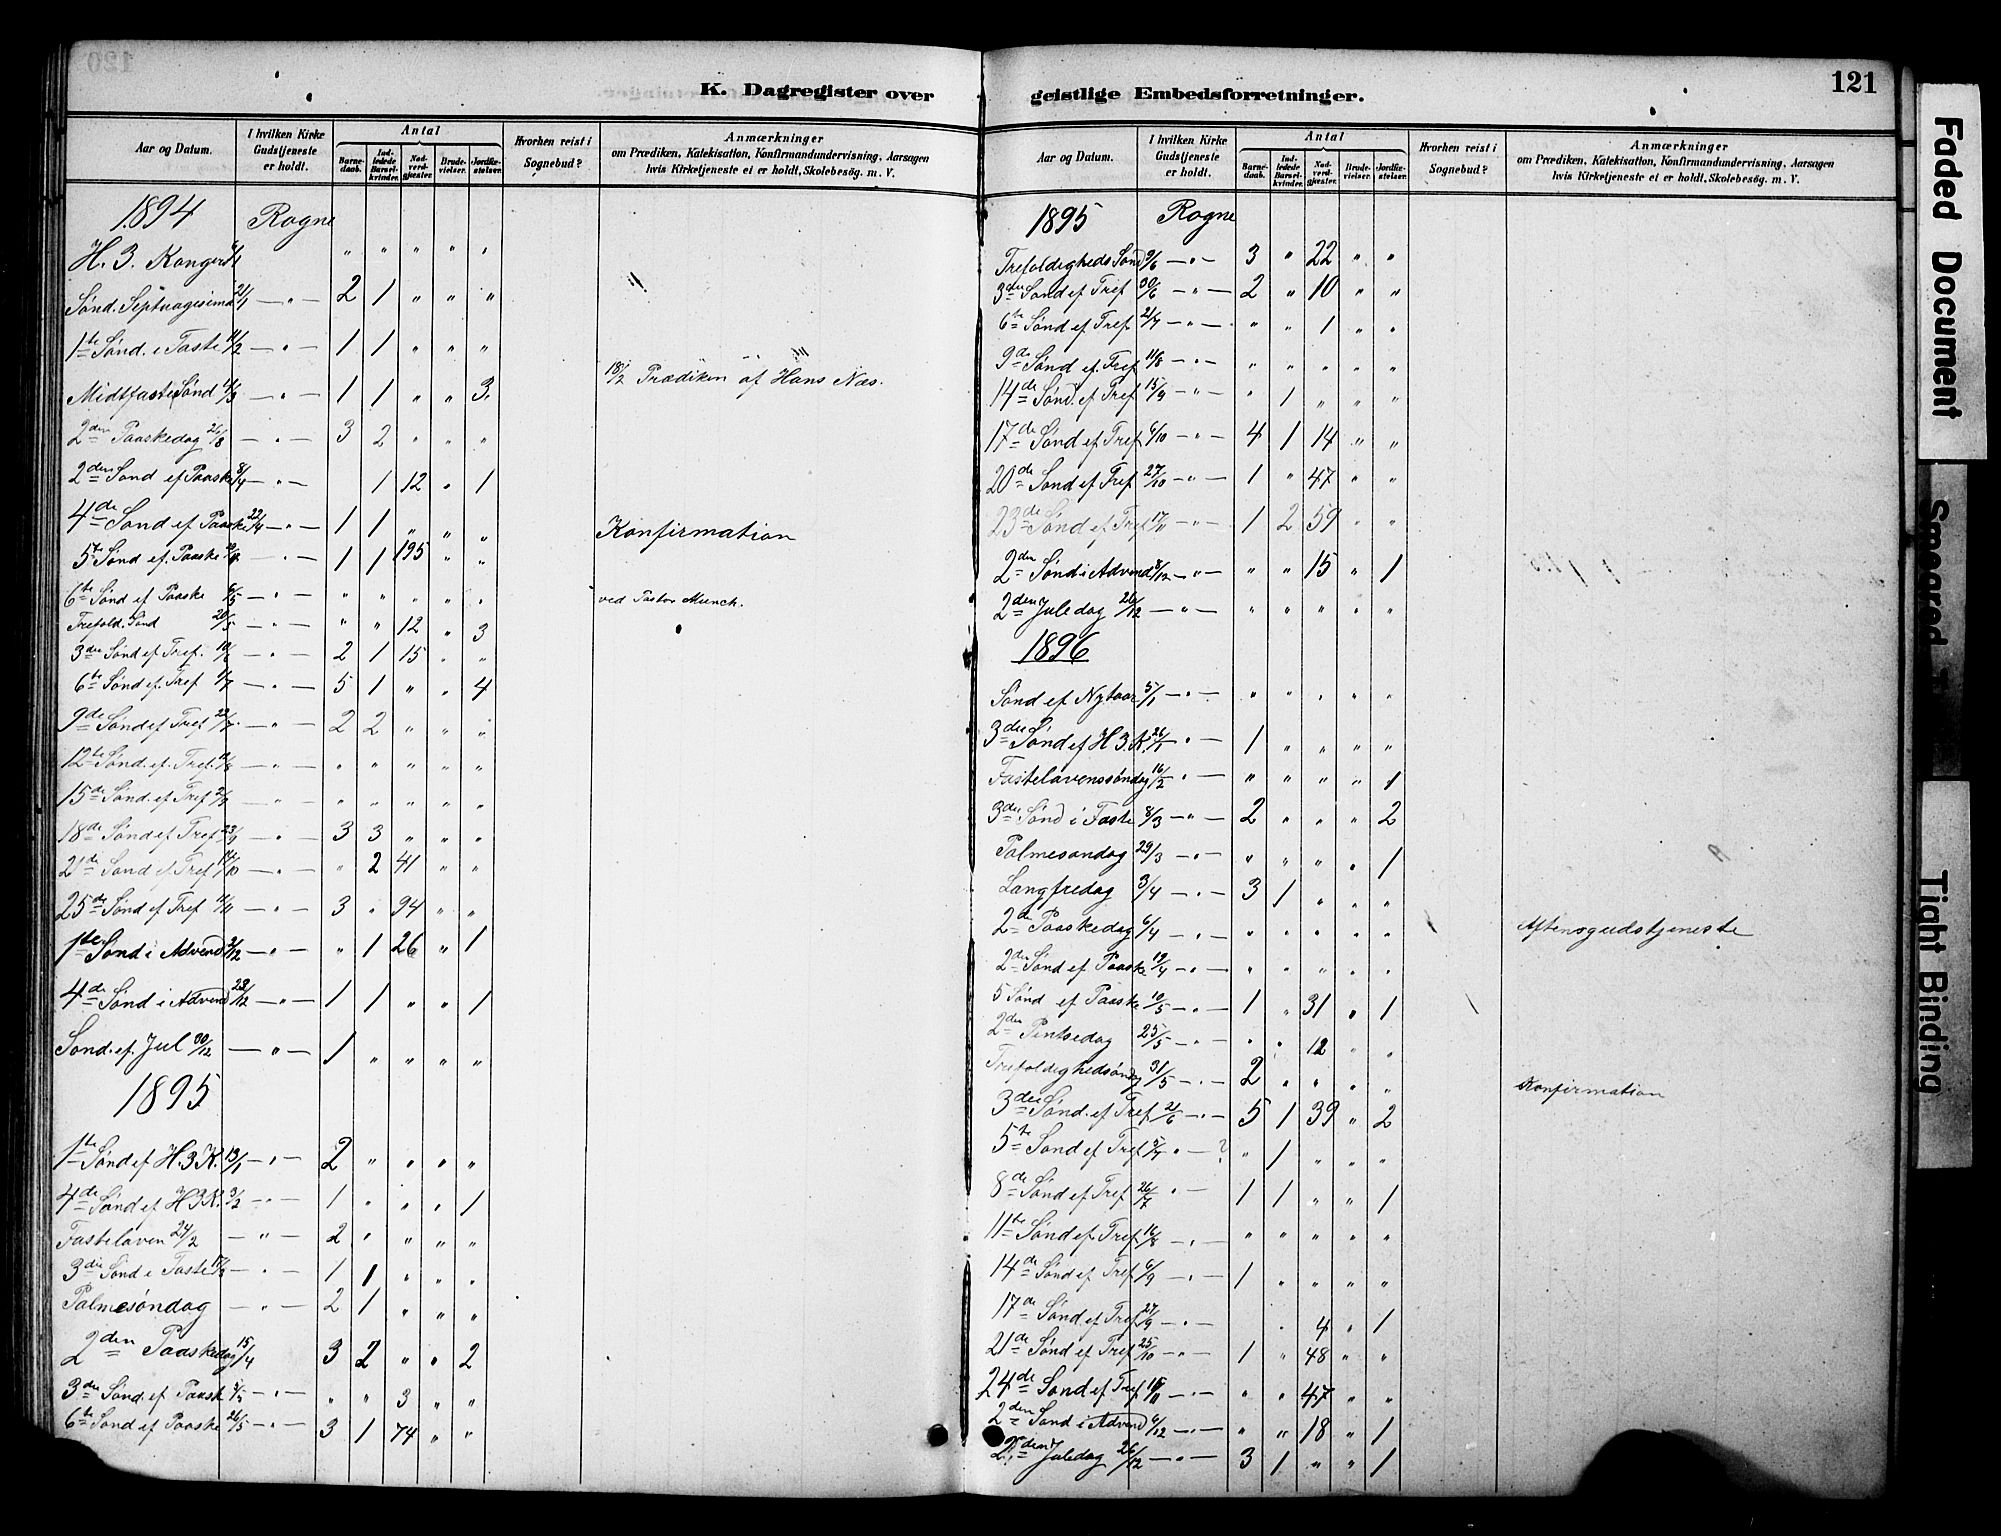 120
K. Dagregister over
Aar og Datum.
I hvilken Kirke Gudstjeneste er holdt.
Antal
Barne-daab.
Ind-ledede Barsel-kvinder.
Nad-verd-gjester.
Brude-vielser.
Jordfæ-stelser.
Hvorhen reist i Sognebud?
Anmærkninger
om Prædiken, Katekisation, Konfirmandundervisning, Aarsagen
hvis Kirketjeneste ei er holdt, Skolebesøg. m. V.
1894 Rogne
H. 3. Konger 6/1 " " " " "
Sønd. Septuagesima 21/1 — " — 2 1 " " "
1te Sønd. i Faste 11/2 — " — 1 1 " " "
18/2 Prædiken af Hans Næs.
Midtfaste Sønd 4/3 — " — 1 1 " " 3.
2den Paaskedag 26/3 — " — 3 2 " " "
2den Sønd ef Paaske 8/4 — " — 1 12 " 1
4de Sønd ef Paaske 22/4 — " — 1 1 " " " Konfirmation
5te Sønd ef. Paaske — " — 1 1 195 " "
6te Sønd ef Paaske 6/5 — " — " " " " " ved Pastor Munch.
Trefold. Sønd 20/5 — " — " " 12 " 3
3die Sønd ef Tref. 10/6 — " — 2 1 15 " "
6te Sønd ef. Tref 1/7 — " — 5 1 " " 4
9de Sønd ef Tref 22/7 — " — 2 2 " " "
12te Sønd. ef. Tref. 12/8 — " — " " " " "
15de Sønd. ef Tref 2/9 — " — " " " " "
18de Sønd ef Tref. 23/9 — " — 3 3 " " "
21de Sønd ef Tref 14/10 — " — " 2 41 " "
25de Sønd ef Tref 11/11 — " — 3 " 94 " "
1te Sønd i Advend 2/12 — " — " 1 26 " 1
4de Sønd i Advend 23/12 — " — 1 1 " " 1
Sønd. ef. Jul 30/12 — " — 1 " " " "
1895
1te Sønd ef H. 3 K. 13/1 — " — 2 " " " "
4de Sønd ef H. 3 K. 3/2 — " — 1 " " " 1
Fastelaven 24/2 — " — 2 " " " "
3die Sønd i Faste 17/3 — " — 1 1 " " "
Palmesøndag — " — 2 1 " " "
2den Paaskedag 15/4 3 2 " " 2
3die Sønd. ef Paask 5/5 — " — " " 3 " "
6te Sønd ef Paaske 26/5 — " — 3 1 74 " "
121
geistlige Embedsforretninger.
Aar og Datum.
I hvilken Kirke Gudstjeneste er holdt.
Antal
Barne-daab.
Ind-ledede Barsel-kvinder.
Nad-verd-gjester.
Brude-vielser.
Jordfæ-stelser.
Hvorhen reist i Sognebud?
Anmærkninger
om Prædiken, Katekisation, Konfirmandundervisning, Aarsagen
hvis Kirketjeneste ei er holdt, Skolebesøg. m. V.
1895 Rogne
Trefoldigheds Sønd 9/6 — " — 3 " 22 " "
3die Sønd ef Tref 30/6 — " — 2 " 10 " "
6te Sønd ef Tref. 21/7 — " — " " 1 " "
9de Sønd ef. Tref 11/8 — " — " " " " "
14de Sønd. ef Tref 15/9 — " — " 1 " " "
17de Sønd ef Tref 6/10 — " — 4 1 14 " "
20de Sønd ef Tref 27/10 — " — 1 " 47 " "
23de Sønd ef Tref 17/11 — " — 1 2 59 " "
2den Sønd i Advend 8/12 — " — " " 15 " 1
2den Juledag 26/12 — " — " " " " "
1896
Sønd ef Nytaar 5/1 — " — " " " " "
3die Sønd ef H 3. K. 26/1 " — 1 " " " "
Fastelavenssøndag 16/2 " — " " " " 1
3die Sønd i Faste 8/3 — " — 2 " " " 2
Palmesøndag 29/3 — " — " " " " 1
Langfredag 3/4 — " — 3 1 " " "
2de Paaskedag 6/4 — " — " " " " " Aftensgudstjeneste
2de Sønd ef Paaske 19/4 — " — " " " " "
5 Sønd ef Paaske 10/5 — " — 1 " 31 " 1
2den Pintsedag 25/5 — " — " " 12 " "
Trefoldighedsøndag 31/5 — " — 2 " " " " Konfirmation
3die Sønd. ef Tref. 21/6 — " — 5 1 39 " 2
5te Sønd ef Tref 5/7 " — ? " 1 " " "
8de Sønd ef Tref 26/7 " — 1 1 " " 1
11te Sønd ef. Tref 16/8 — " — " " " " "
14de Sønd ef Tref 6/9 — " — 1 " " " "
17de Sønd ef Tref 27/9 — " — " 4 " 1
21de Sønd ef Tref 25/10 — " — 1 " 48 " "
24de Sønd ef Tref 15/11 — " — " " 47 " "
2den Sønd i Advend 6/12 — " — " " 18 " 1
2den Juledag 26/12 — " — 3 1 " " 1
Faded Document
Smeared T
Tight Binding